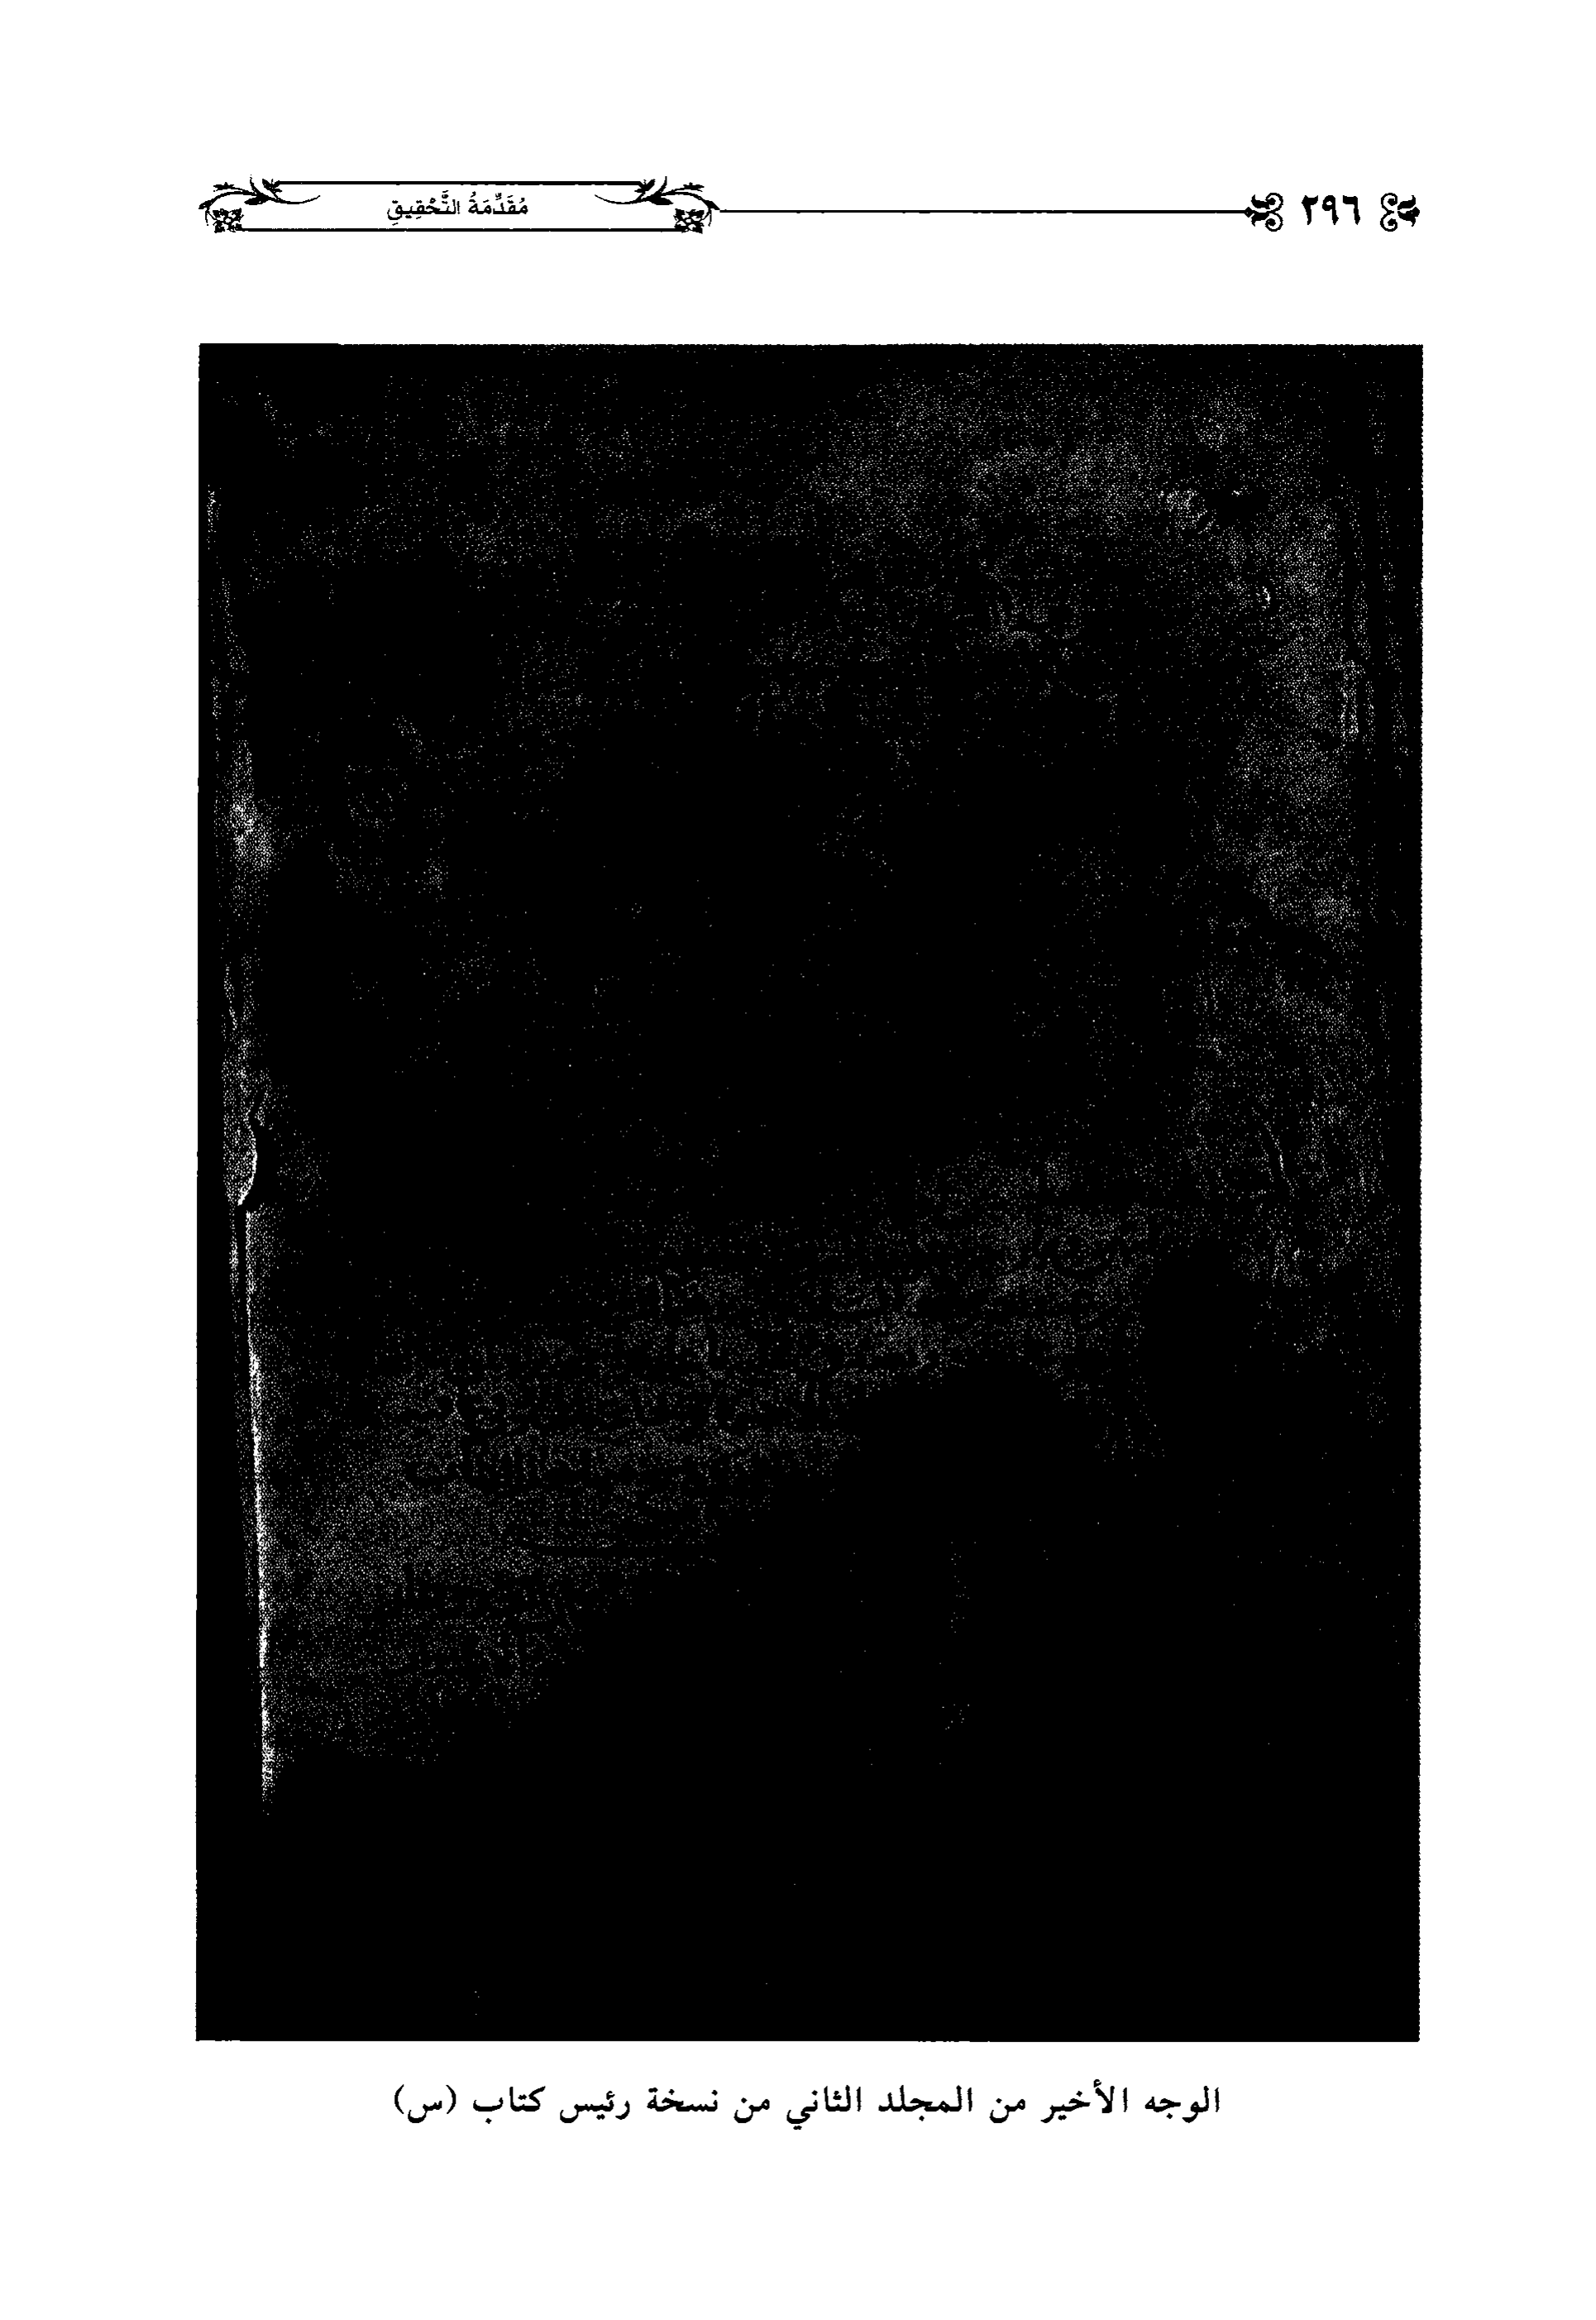 ٢٩٦
مُقَدِّمَةُ التَّحْقِيقِ
الوجه الأخير من المجلد الثاني من نسخة رئيس كتاب (س)